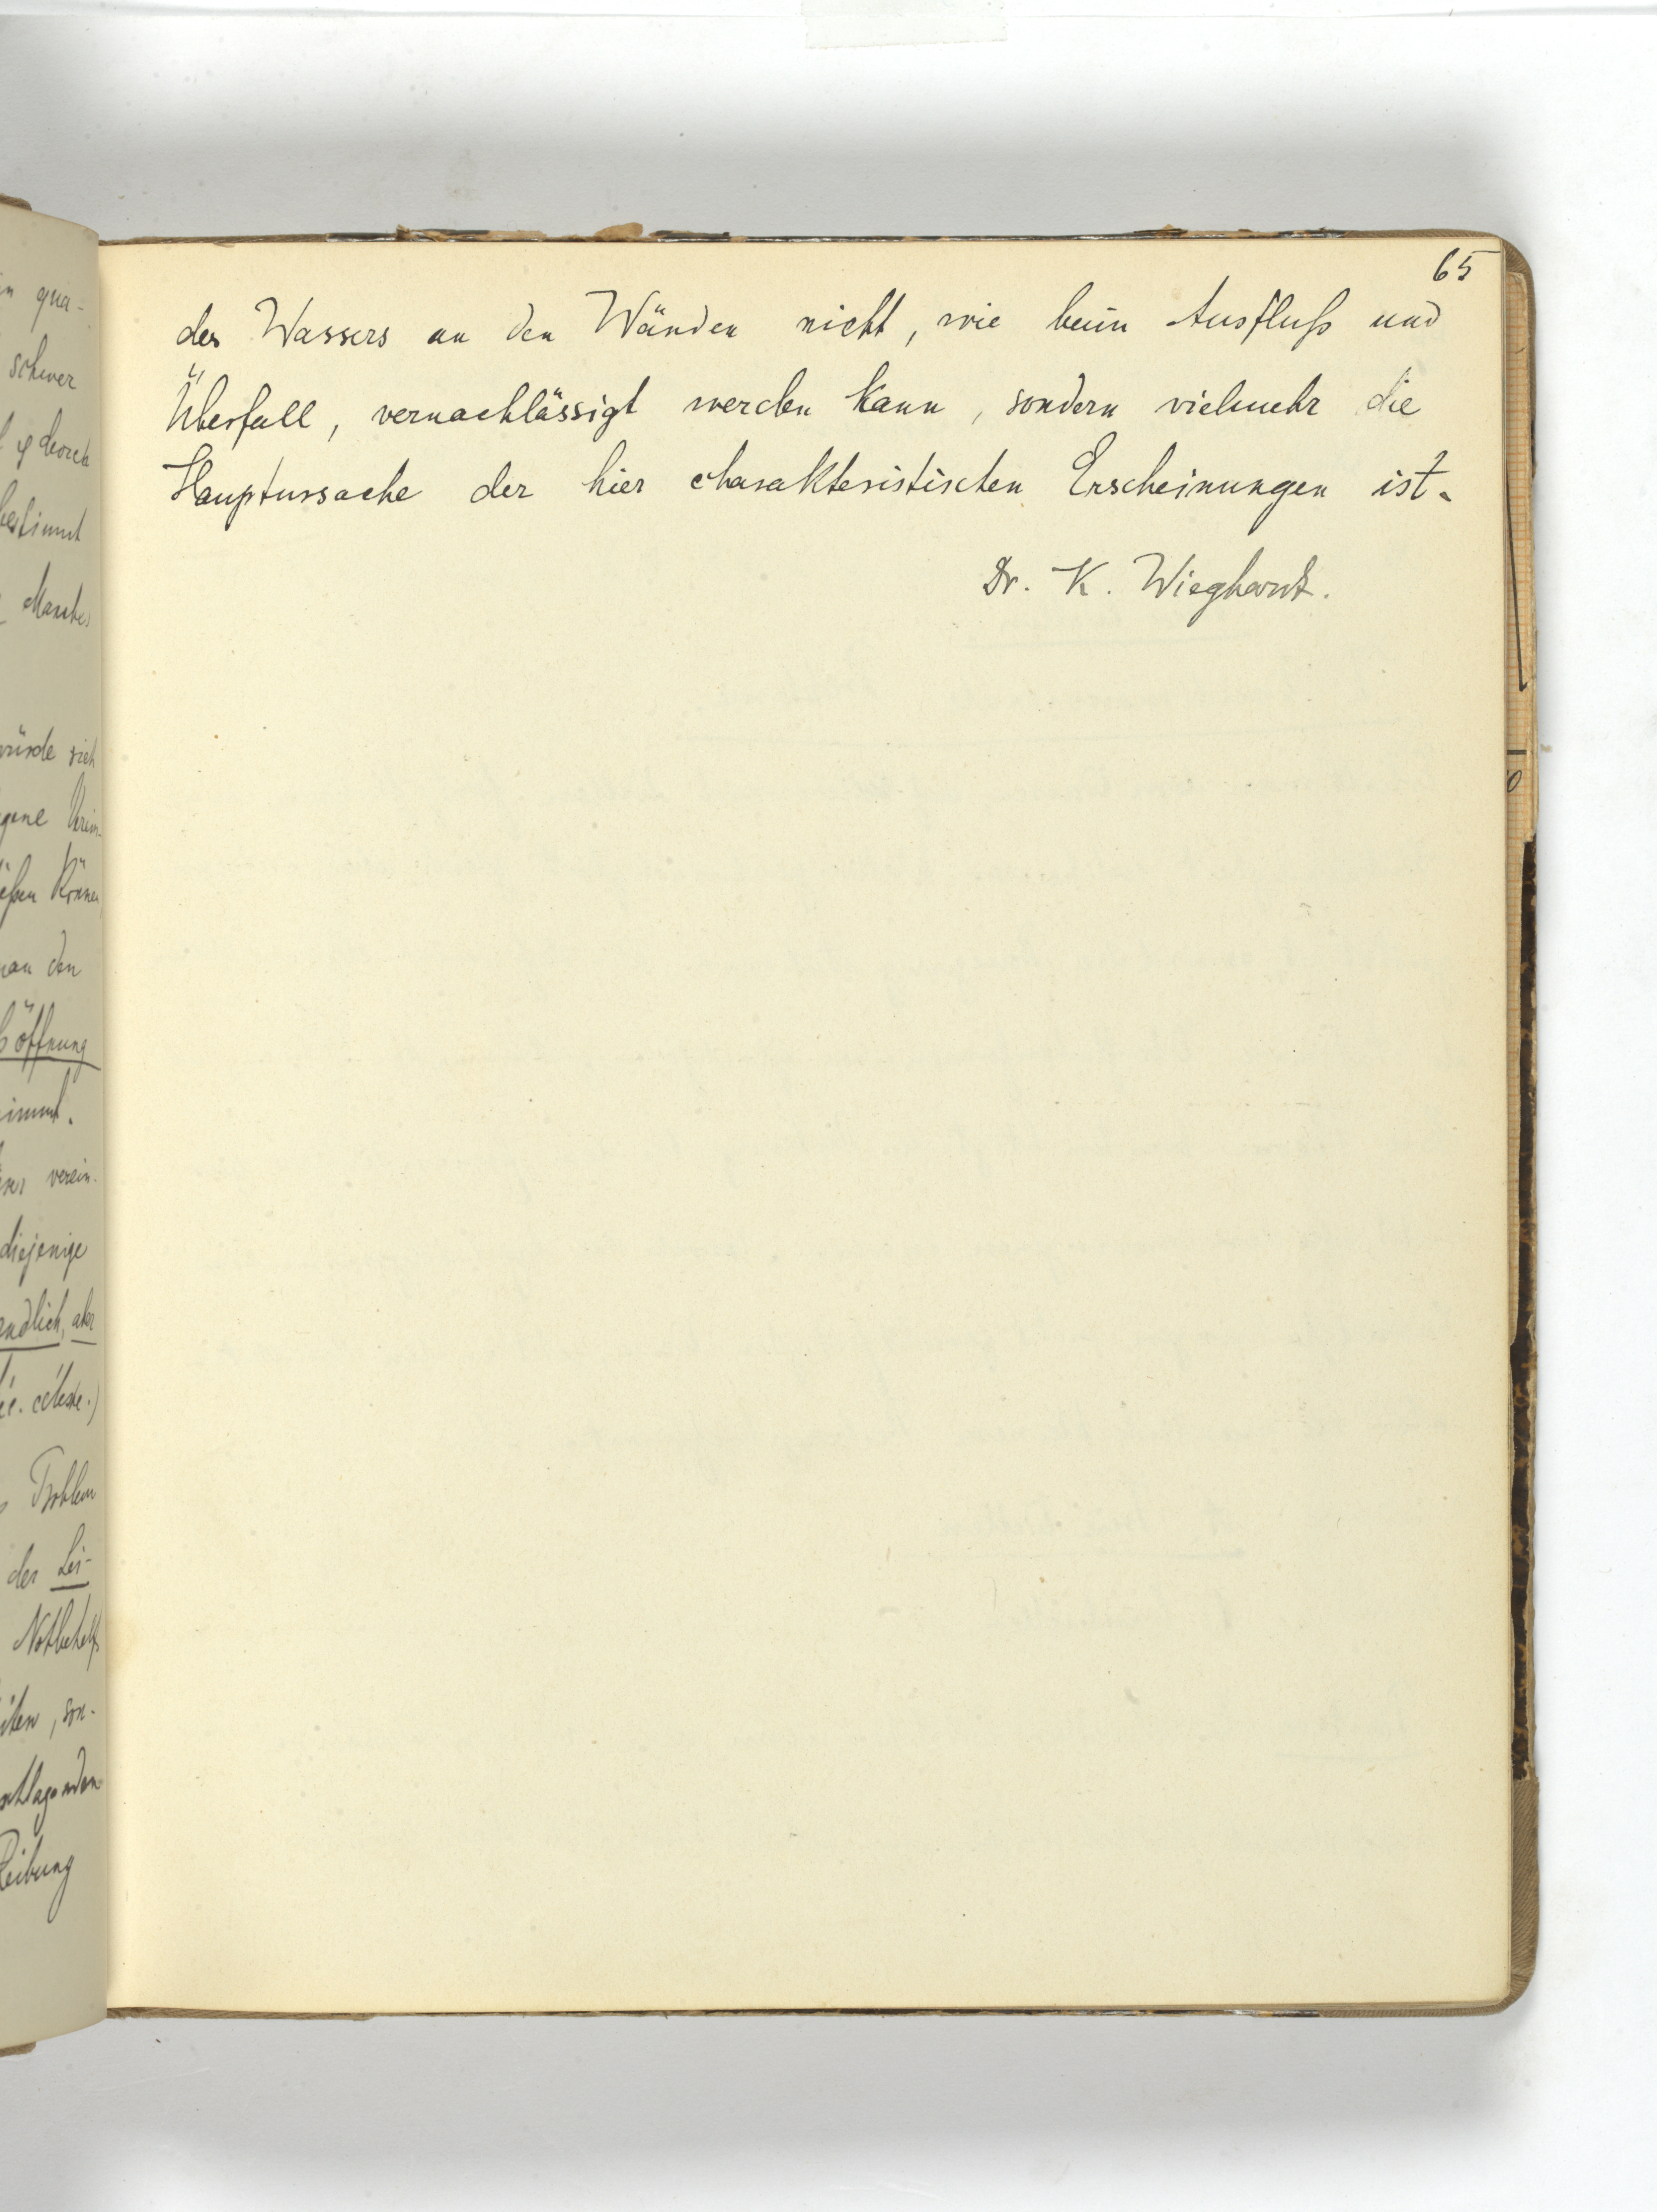 65
des Wassers an den Wänden nicht, wie beim Ausfluß und
Überfall, vernachlässigt werden kann, sondern vielmehr die
Hauptursache der hier charakteristischen Erscheinungen ist.
Dr. K. Wieghardt.
qua-
schwer
durch
bestimmt
würde sich
können
man den
öffnung
verein-
diejenige
endlich, aber
céleste.)
Problem
der Lei-
Notbehelfs
, son-
Reibung